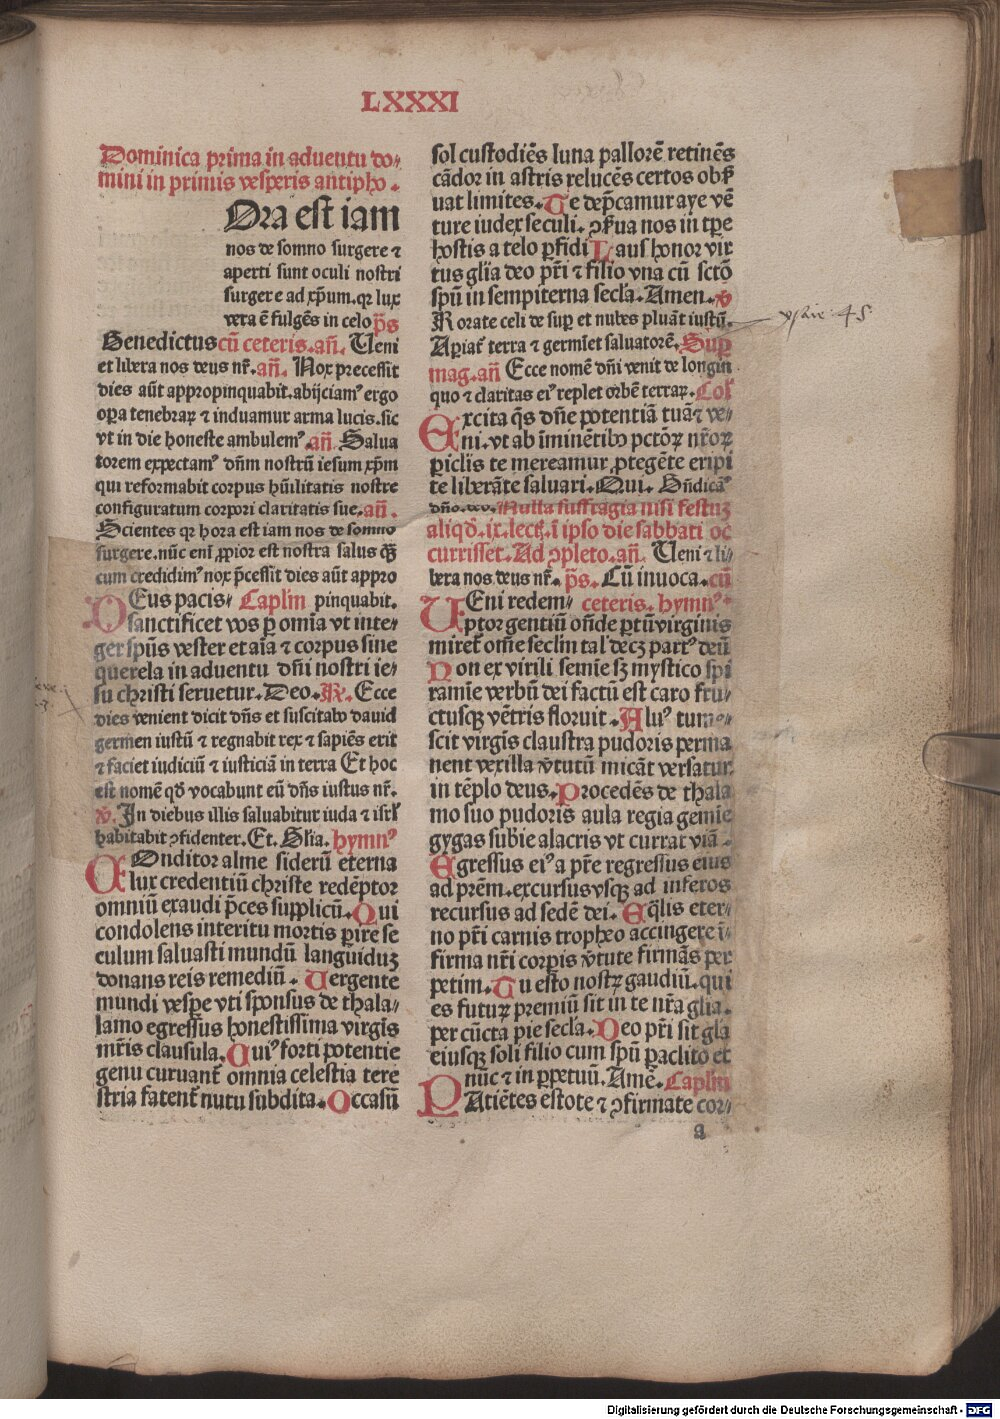 LXXXI
Dominica prima in aduentu do⸗
mini in primis vesperis antipho.
Ora est iam
nos de somno surgere ⁊
aperti sunt oculi nostri
surgere ad xp̄um. qꝛ lux
vera ē fulgēs in celo p̄s
Benedictus cū ceteris. an̄. Ueni
et libera nos deus nr̄. an̄. Nox precessit
dies aūt appropinquabit. abijciamꝰ ergo
oꝑa tenebraꝝ ⁊ induamur arma lucis. sic
vt in die honeste ambulemꝰ. an̄. Salua
torem expectamꝰ dn̄m nostrū iesum xp̄m
qui reformabit corpus hūilitatis nostre
configuratum corpori claritatis sue. an̄.
Scientes qꝛ hora est iam nos de somno
surgere. nūc enī ꝓpior est nostra salus qꝫ̄
cum credidimꝰ nox p̄cessit dies aūt appro
DEus pacis⸗ Caplm̄ pinquabit.
sanctificet vos ꝑ omīa vt inte⸗
ger sp̄us vester et aīa ⁊ corpus sine
querela in aduentu dn̄i nostri ie⸗
su christi seruetur. Deo. R̄. Ecce
dies venient dicit dn̄s et suscitabo dauid
germen iustū ⁊ regnabit rex ⁊ sapiēs erit
⁊ faciet iudiciū ⁊ iusticiā in terra Et hoc
est nomē qd̄ vocabunt eū dn̄s iustus nr̄.
v̄. In diebus illis saluabitur iuda ⁊ isrl̄
habitabit ꝯfidenter. Et. Glīa. hymnꝰ
COnditor alme siderū eterna
lux credentiū christe redēptor
omniū exaudi p̄ces supplicū. Qui
condolens interitu mortis ꝑire se
culum saluasti mundū languiduꝫ
donans reis remediū. Uergente
mundi vesꝑe vti sponsus de thala⸗
lamo egressus honestissima virgīs
mr̄is clausula. Quiꝰ forti potentie
genu curuant̄ omnia celestia tere
stria fatent̄ nutu subdita. Occasū
sol custodiēs luna pallorē retinēs
cādor in astris relucēs certos obẜ
uat limites. Te dep̄camur aye vē
ture iudex seculi. ꝯẜua nos in tꝑe
hostis a telo ꝑfidi Laus honor vir
tus gl̄ia deo pr̄i ⁊ filio vna cū sctō
sp̄ū in sempiterna secl̄a. Amen. v̄
Rorate celi de suꝑ et nubes pluāt iustū.
Aꝑiat̄ terra ⁊ germīet saluatorē. Suꝑ
mag. an̄ Ecce nomē dn̄i venit de longin
quo ⁊ claritas eiꝰ replet orbē terraꝝ. Col̄
Excita qs̄ dn̄e potentiā tuā ⁊ ve⸗
ni. vt ab īminētibꝫ pctōꝝ nr̄oꝝ
ꝑiclis te mereamur ꝓtegēte eripi
te liberāte saluari. Qui. Bn̄dicāꝰ
dn̄o. Nulla suffragia nisi festuꝫ
aliqd̄. ix. lect̄. ī ipso die sabbati oc
currisset. Ad ꝯpleto. an̄. Ueni ⁊ li⸗
bera nos deus nr̄. p̄s. Cū inuoca. cū
UEni redem⸗ ceteris. hymnꝰ
ptor gentiū on̄de ꝑtū virginis
miret̄ om̄e secl̄m tal̓ decꝫ partꝰ deū
Non ex virili semīe sꝫ mystico spi
ramīe verbū dei factū est caro fru⸗
ctusqꝫ vētris floruit. Aluꝰ tume⸗
scit virgīs claustra pudoris perma
nent vexilla v̄tutū micāt versatur
in tēplo deus. Procedēs de thala
mo suo pudoris aula regia gemīe
gygas subīe alacris vt currat viā
Egressus eiꝰ a pr̄e regressus eius
ad prēm. excursus vsqꝫ ad inferos
recursus ad sedē dei. Eq̄lis eter⸗
no pr̄i carnis tropheo accingere ī⸗
firma nr̄i corpīs v̄tute firmās per
petim. Tu esto nostꝝ gaudiū. qui
es futurꝰ premiū sit in te nr̄a glīa.
per cūcta pie secl̄a. Deo pr̄i sit gl̄a
eiusqꝫ soli filio cum sp̄ū ꝑaclito et
nūc ⁊ in ꝑpetuū. Amē. Caplm̄
PAtiētes estote ⁊ ꝯfirmate cor⸗
a
Digitalisierung gefördert durch die Deutsche Forschungsgemeinschaft - DFG